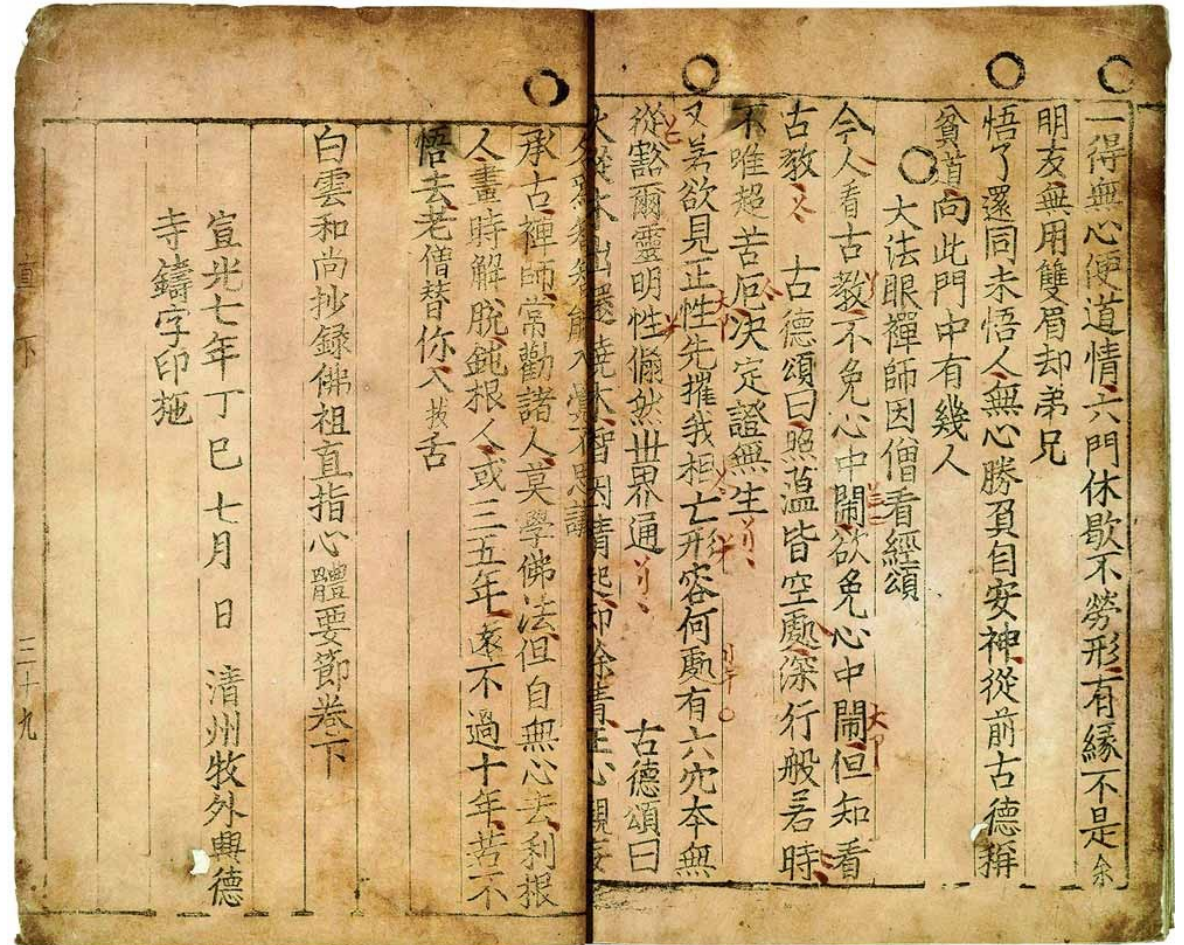 一得無心便道情六門休歇不勞形有緣不是余
明友無用雙眉却弟兄
悟了還同未悟人無心勝負自安神從前古德稱
貧道向此門中有幾人
○大法眼禪師因僧看經頌
今人看古教不免心中鬧欲免心中鬧但知看
古教 古德頌曰照蘊皆空處深行般若時
不唯超苦厄決定證無生
又若欲見正性先摧我相亡形容何處有六穴本無
從豁爾靈明性翛然世界通 古德頌曰
火從木出還燒木智因情起却除情生心觀妄
解入 不思議
承古禪師常勸諸人莫學佛法但自無心去利根
人晝時解脫鈍根人或三五年遠不過十年苦不
悟去老僧替你入拔舌
白雲和尚抄錄佛祖直指心體要節卷下
宣光七年丁巳七月 日 清州牧外興德
寺鑄字印施
直下 三十九